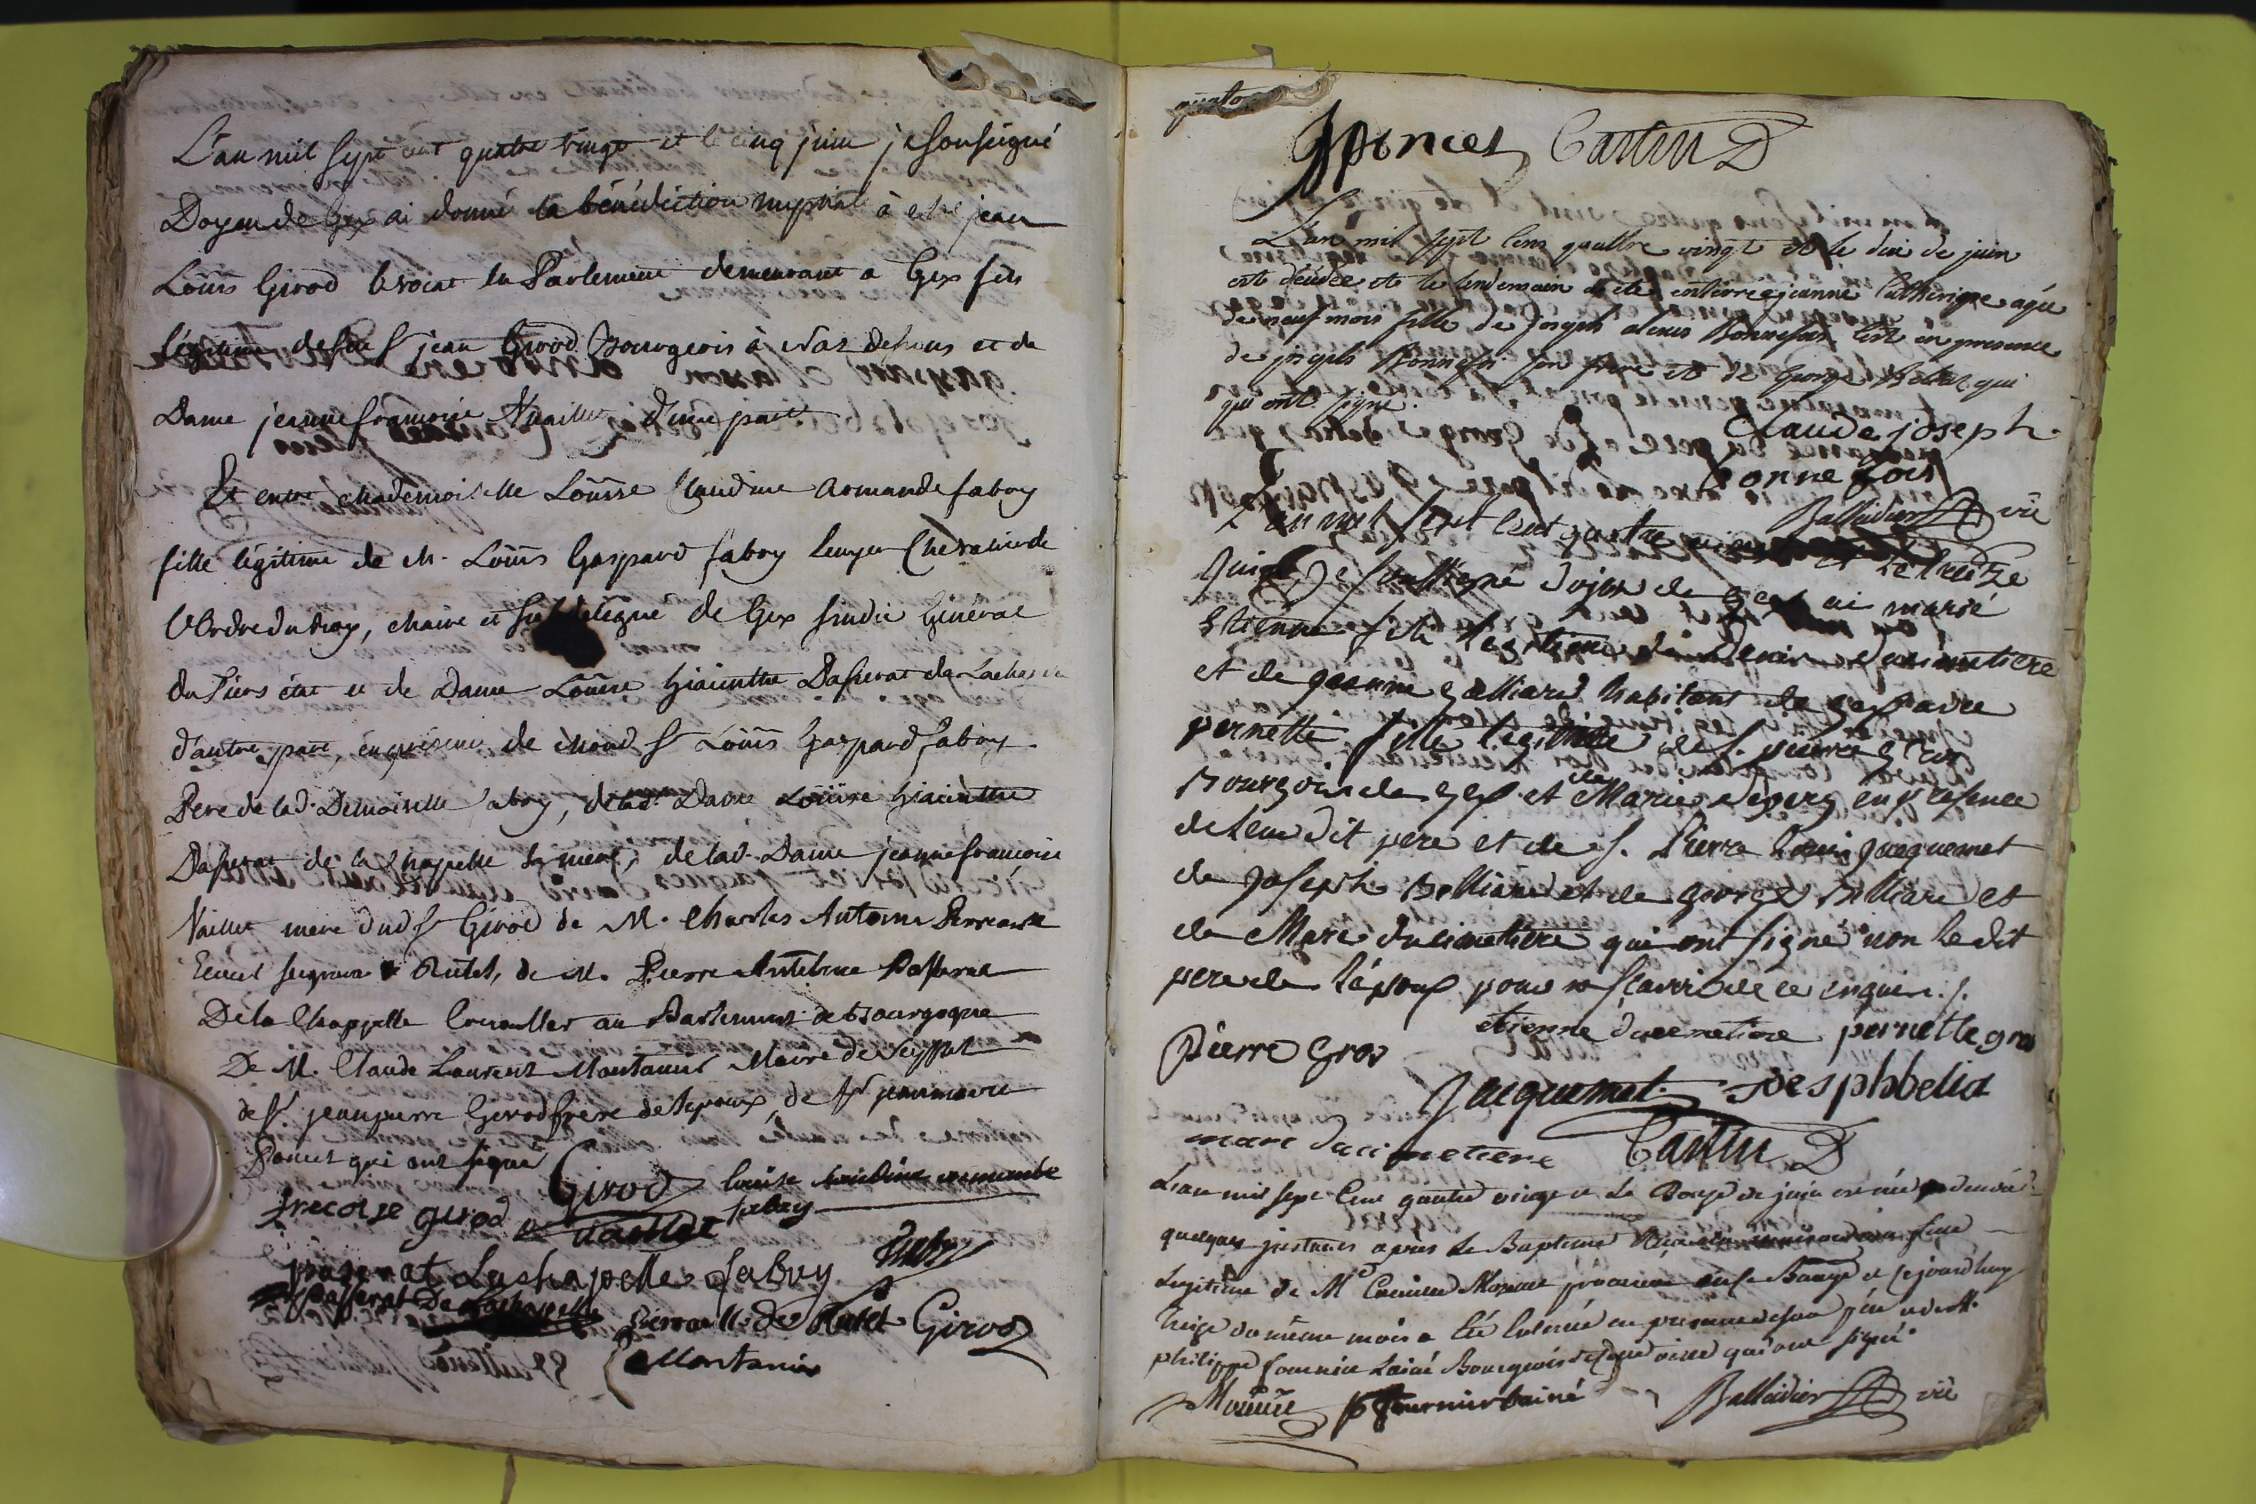 L'an mil sept cent quatre vingt et le cinq juin je soussigné
Doyen de Gex ai donné la bénédiction nuptiale à jean
Loüis Girod avocat en Parlement demeurant a Gex fils
légitime de feu Sr jean Girod Bourgeois à et de
Dame jeanne francoise Vuaillet d'une part.
Et entre Mademoiselle Loüise Claudine Armande fabry
fille légitime de M. Loüis Gaspard fabry Ecuyer Chevalier de
l'Ordre du Roy, Maire et subdelegué de Gex sindic Général
du Tiers état et de Dame Loüise hiacinthe Passerat de
d'autre part, en présence de Sr Loüis Gaspard fabry
Pere de lad. Demoiselle fabry, de lad. Dame Loüise hiacinthe
Passerat de la Chapelle sa mere, de lad. Dame jeanne francoise
Vaillet mere dud. Sr Girod de M. Charles Antoine Perrault
Ecuier seigneur Rutet, de M. Pierre Anthelme Passerat
De la Chappelle Conseiller au Parlement de Bourgogne
De M. Claude Laurent Montanier Maire de Seyssel
de Sr jean pierre Girod frere de l'epoux, de Sr jean marie
Poncet qui ont signé
Girod louise claudine armande
fabry
girod Vaillet
passerat Lachapelle fabry
passerat De Lachapelle
Perrault de Rutet Girod
Montanier
Poncet Castin D
L'an mil sept cens quattre vingt et le dix de juin
est décédée et le lendemain a été enterrée jeanne Catherine agée
de neuf mois fille de joseph alexis Bonnefoi en presence
de joseph Bonnefoi son frere et de George qui
qui ont signé.
Claude joseph
bonne fois
Balleidier vic
L'an mil sept cent quatre vingt et le treize
juin je soussigné doyen de gex ai marié
Etienne fils legitime de Denis ducimetiere
et de jeanne galliard habitant de gex avec
pernette fille legitime de S. pierre gros
Bourgois de gex et de Marie en presence
de leur dit pere et de S. Pierre Louis jacquemet
de joseph Belliard et de george Billiard et
de Marc ducimetiere qui ont signé non le dit
pere de l'époux pour ne sçavoir de ce enquis.
Pierre Gros etienne ducemetiere pernette gros
Jacquemet Joesphbelia
marc ducimetiere Castin D
L'an mil sept cent quatre vingt et le douze de juin est née
quelques instants apres le Baptême fille
legitime de Me procureur et le jourd'huy
treize du même mois a été enterrée en presence de son pere et de M.
philippe fournier l'ainé Bourgeois de cette ville qui ont signé.
fournier lainé Balleidier vic